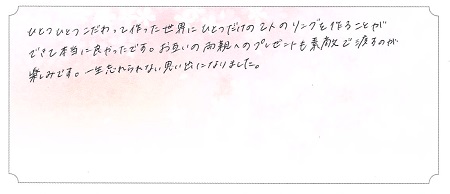 ひとつひとつこだわって作った世界にひとつだけの2人のリングを作ることが
できて本当に良かったです。お互いの両親へのプレゼントも素敵で渡すのが
楽しみです。一生忘れられない思い出になりました。